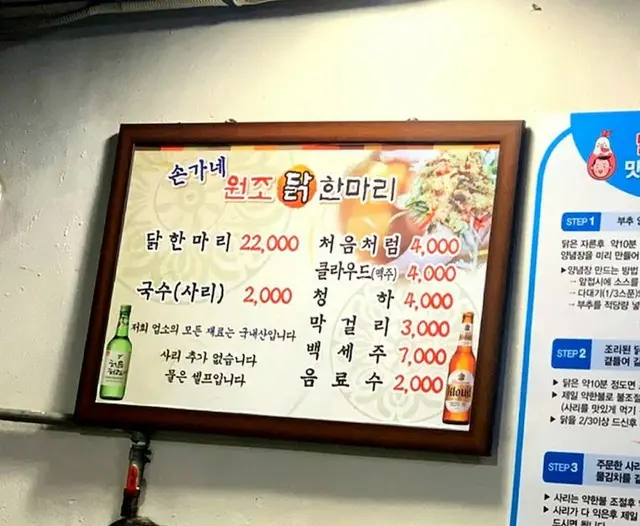 손가네 원조 닭 한마리
닭한마리 22,000
국수(사리) 2,000
저희 업소의 모든 재료는 국내산입니다
사리 추가 없습니다
물은 셀프입니다
처음처럼 4,000
클라우드(맥주) 4,000
청하 4,000
막걸리 3,000
백세주 7,000
음료수 2,000
STEP 1
부추
닭은 자른후 약10분
양념장을 미리 만들어
▶양념장 만드는 방법
→ 앞접시에 소스를
→ 다대기(1/3스푼)
→ 부추를 적당량
STEP 2
조리된
곁들여
▶ 닭은 약10분 정도면
▶ 제일 약한불로 불조절
(사리를 맛있게 먹기
▶ 닭을 2/3이상 드신후
STEP 3
주문한 사리
물김차를
▶ 사리는 약한불 조절후
▶ 사리가 다 익은후 제일
드시면 됩니다